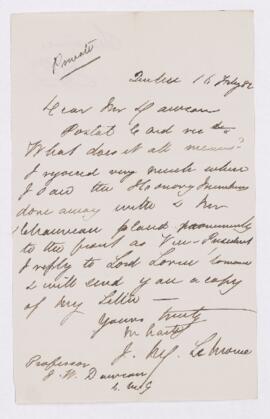 Private
Quebec 16 Feby 82
Dear Mr Dawson
Postal Card recd
What does it all mean?
I rejoiced very much when
I saw the Honorary members
done away with & Mr
Chauveau placed
to the front as Vice-President
I reply to Lord Lorne
& will send you a copy
of my letter —
Yours truly
in haste
J. M. LeMoine
Professor
J. W. Dawson
C.M.G